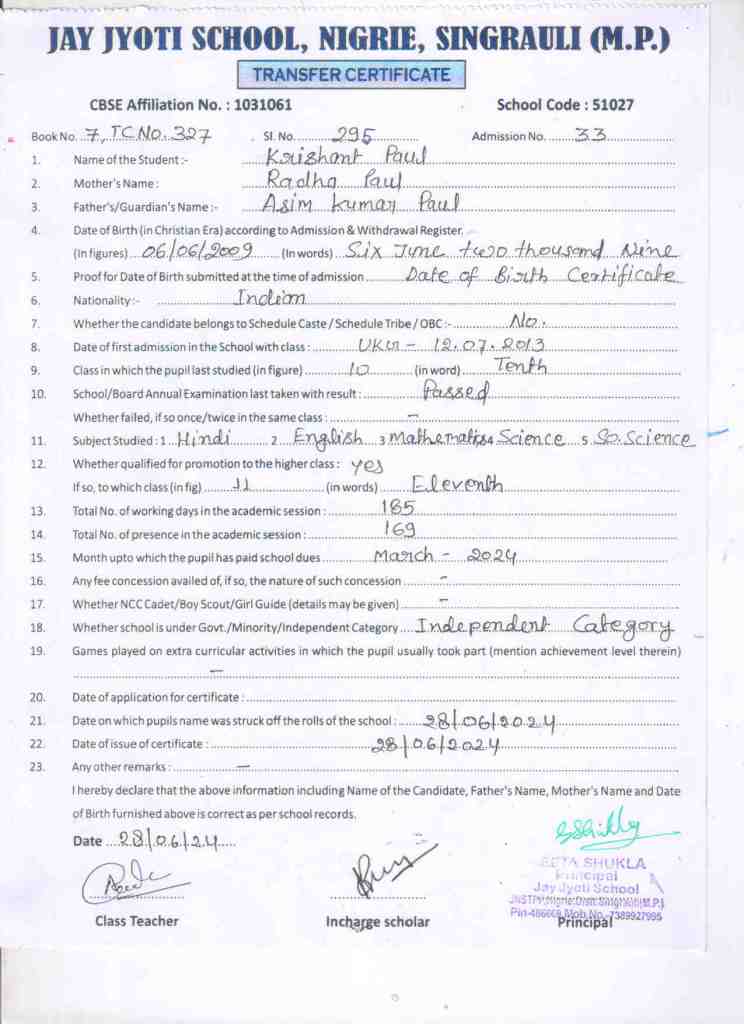 JAY JYOTI SCHOOL, NIGRIE, SINGRAULI (M.P.)
TRANSFER CERTIFICATE
CBSE Affiliation No. : 1031061 School Code : 51027
Book No. 7, TC No. 327 Sl. No. 295 Admission No. 33
1. Name of the Student :- Krishant Paul
2. Mother's Name : Radha Paul
3. Father's/Guardian's Name :- Asim Kumar Paul
4. Date of Birth (in Christian Era) according to Admission & Withdrawal Register.
(In figures) 06/06/2009 (In words) Six June two thousand Nine
5. Proof for Date of Birth submitted at the time of admission Date of Birth Certificate
6. Nationality :- Indian
7. Whether the candidate belongs to Schedule Caste / Schedule Tribe / OBC :- No.
8. Date of first admission in the School with class : UKG - 12.07.2013
9. Class in which the pupil last studied (in figure) 10 (in word) Tenth
10. School/Board Annual Examination last taken with result : Passed
Whether failed, if so once/twice in the same class : -
11. Subject Studied : 1 Hindi 2 English 3 Mathematics 4 Science 5 So. Science
12. Whether qualified for promotion to the higher class : yes
If so, to which class (in fig) 11 (in words) Eleventh
13. Total No. of working days in the academic session : 185
14. Total No. of presence in the academic session : 169
15. Month upto which the pupil has paid school dues March - 2024
16. Any fee concession availed of, if so, the nature of such concession -
17. Whether NCC Cadet/Boy Scout/Girl Guide (details may be given) -
18. Whether school is under Govt./Minority/Independent Category Independent Category
19. Games played on extra curricular activities in which the pupil usually took part (mention achievement level therein)
-
20. Date of application for certificate :
21. Date on which pupils name was struck off the rolls of the school : 28/06/2024
22. Date of issue of certificate : 28/06/2024
23. Any other remarks : -
I hereby declare that the above information including Name of the Candidate, Father's Name, Mother's Name and Date
of Birth furnished above is correct as per school records.
Date 28/06/24
SHUKLA
Principal
Jay Jyoti School
Mob.No.-7389927995
Class Teacher Incharge scholar Principal